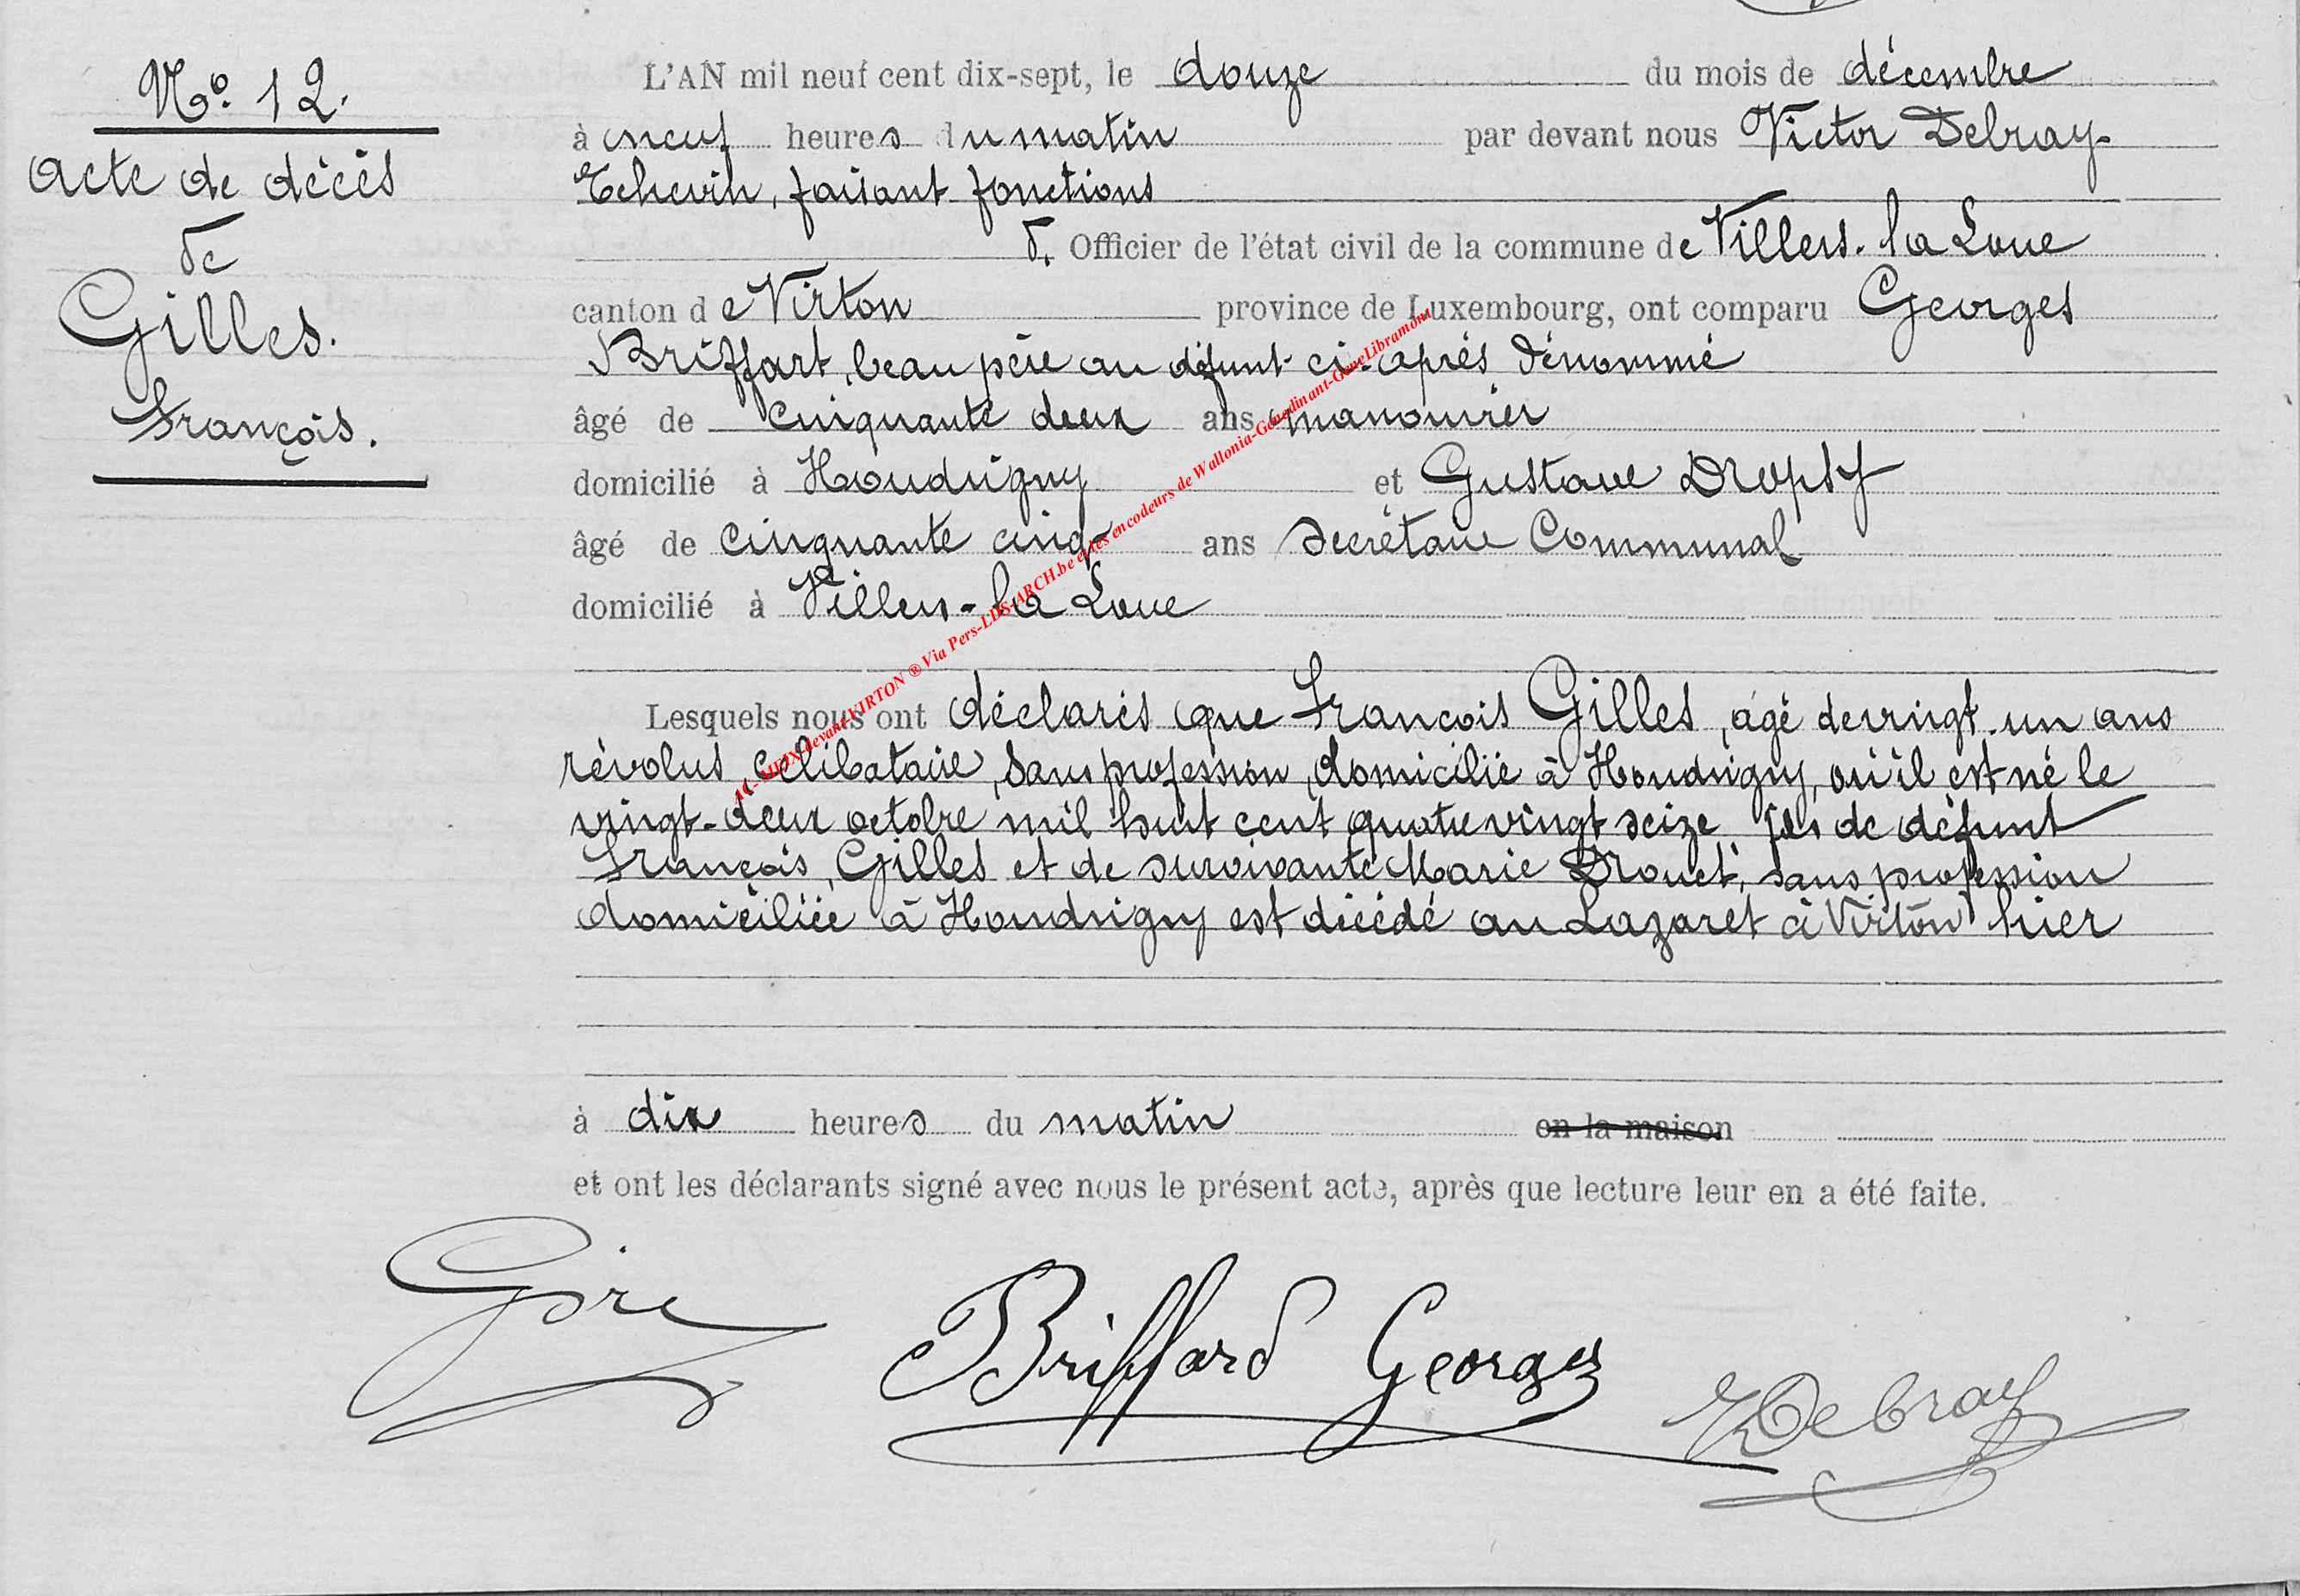 N° 12.
Acte de décès
de
Gilles.
François.
L'AN mil neuf cent dix-sept, le douze du mois de décembre
à neuf heures du matin par devant nous Victor Debray
Echevin, faisant fonctions
d. Officier de l'état civil de la commune de Villers-la Loue
canton de Virton province de Luxembourg, ont comparu Georges
Briffart, beau père au défunt ci-après dénommé
âgé de cinquante deux ans manouvrier
domicilié à Houdrigny et Gustave Dropsy
âgé de cinquante cinq ans secrétaire Communal
domicilié à Villers-la Loue
Lesquels nous ont déclarés que François Gilles, âgé de vingt-un ans
révolus, célibataire, sans profession, domicilié à Houdrigny, où il est né le
vingt-deux octobre mil huit cent quatre vingt seize fils de défunt
François, Gilles et de survivante Marie Drouet, sans profession
domiciliée à Houdrigny est décédé au Lazaret à Virton hier
à dix heures du matin en la maison
et ont les déclarants signé avec nous le présent acte, après que lecture leur en a été faite.
Briffard Georges
VDebray
AC-MEIX-devant-VIRTON ® Via Pers-LDS-ARCH.be et les encodeurs de Wallonia-Genedinant-GeneLibramont